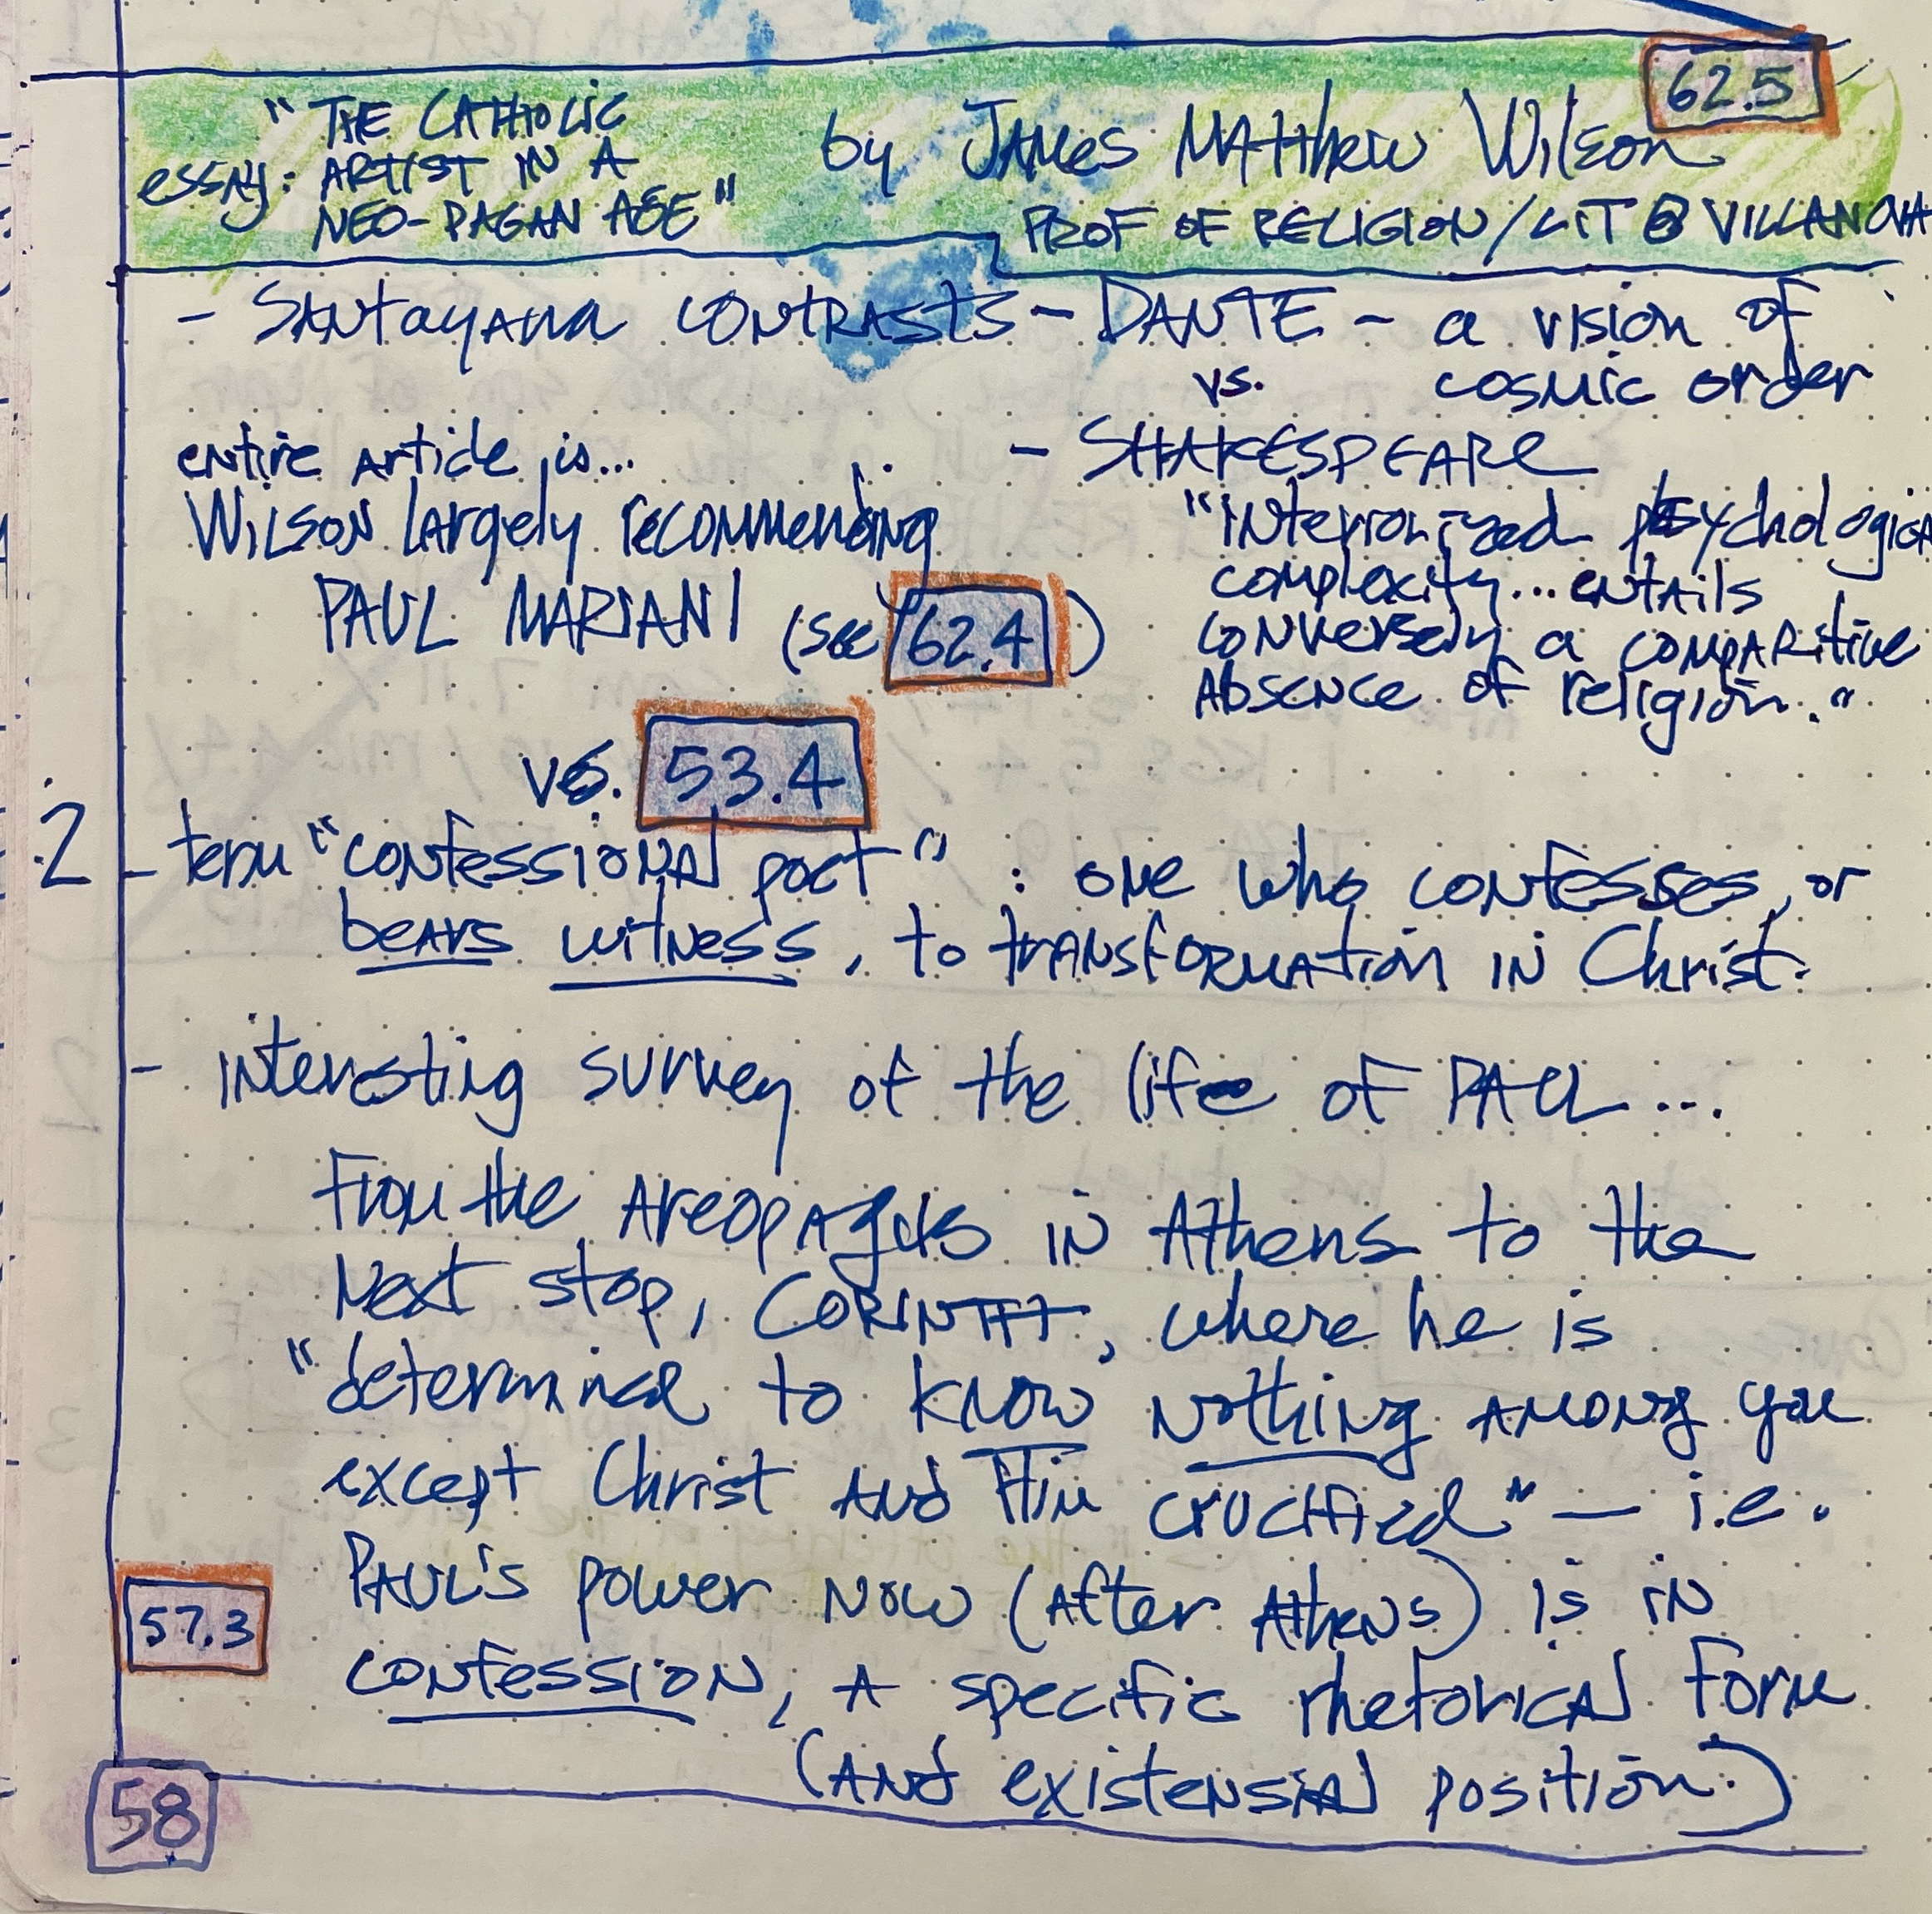 62.5
"THE CATHOLIC
essay: ARTIST IN A
NEO-PAGAN AGE"
by JAMES MATTHEW Wilson
PROF OF RELIGION/LIT @ VILLANOVA
- SANTAYANA CONTRASTS - DANTE - a vision of
vs. cosmic order
- SHAKESPEARE
"interiorized psychological
complexity... entails
conversely a comparitive
Absence of religion."
entire article is...
Wilson largely recommending
PAUL MARIANI (see 62.4)
vs. 53.4
2 - term "confessional poet" : one who confesses, or
bears witness, to transformation in Christ.
- interesting survey of the life of PAUL...
From the Areopagus in Athens to the
Next stop, CORINTH, where he is
"determined to know nothing among you
except Christ and Him crucified" — i.e.
PAUL's power now (after Athens) is in
57.3
confession, a specific rhetorical form
(and existensial position.)
58